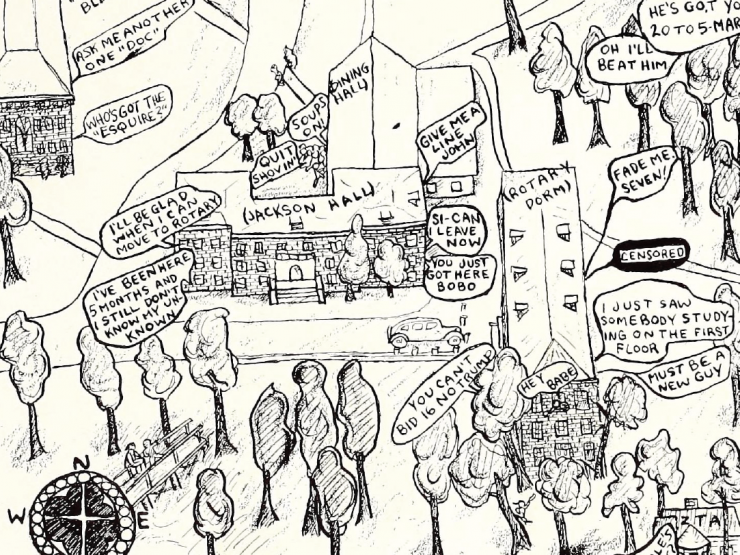 ASK ME ANOTHER
ONE "DOC"
WHO'S GOT THE
"ESQUIRE?"
HE'S GOT YO
20 TO 5-MAR
OH I'LL
BEAT HIM
DINING
HALL)
SOUPS
ON
QUIT
SHOVIN'
GIVE ME A
LINE
JOHN
FADE ME
SEVEN!
(JACKSON HALL)
(ROTARY
DORM)
I'LL BE GLAD
WHEN I CAN
MOVE TO ROTARY
SI-CAN
I LEAVE
NOW
YOU JUST
GOT HERE
BOBO
CENSORED
I'VE BEEN HERE
5 MONTHS AND
I STILL DON'T
KNOW MY UN-
KNOWN
I JUST SAW
SOMEBODY STUDY-
ING ON THE FIRST
FLOOR
MUST BE A
NEW GUY
YOU CAN'T
BID 16 NO TRUMP
HEY BABE
N
W E
ZTA